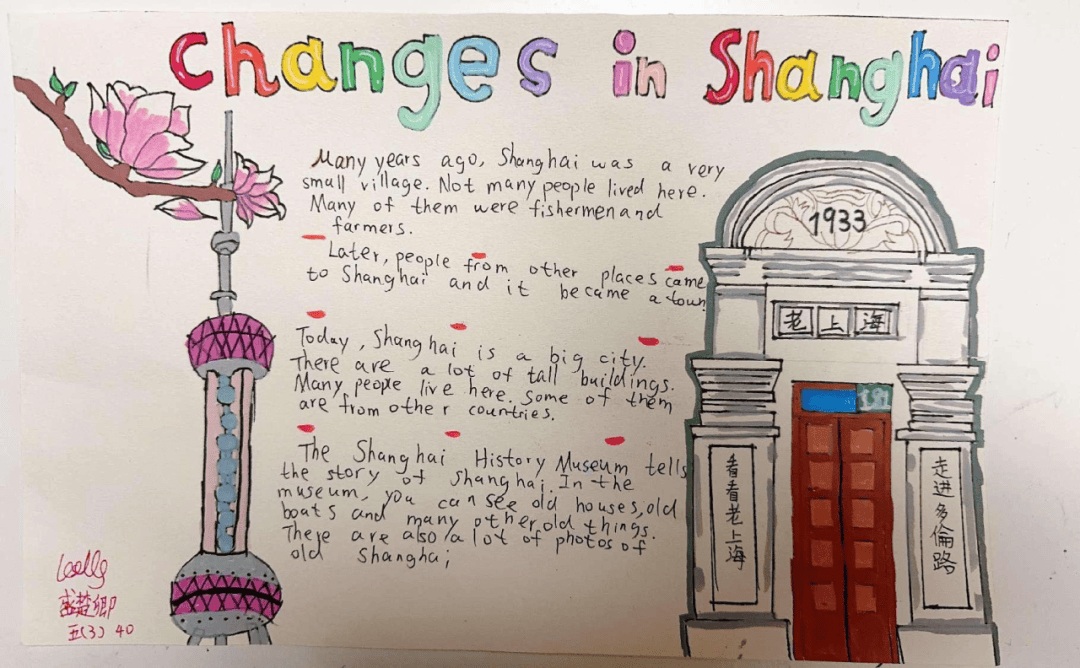 Changes in Shanghai
Many years ago, Shanghai was a very
small village. Not many people lived here.
Many of them were fishermen and
farmers.
Later, people from other places came
to Shanghai and it became a town
Today, Shanghai is a big city.
There are a lot of tall buildings.
Many people live here. Some of them
are from other countries.
The Shanghai History Museum tells
the story of Shanghai. In the
museum, you can see old houses, old
boats and many other old things.
There are also a lot of photos of
old Shanghai
1933
老上海
看看老上海
走进多倫路
盛楚卿
五(3) 40